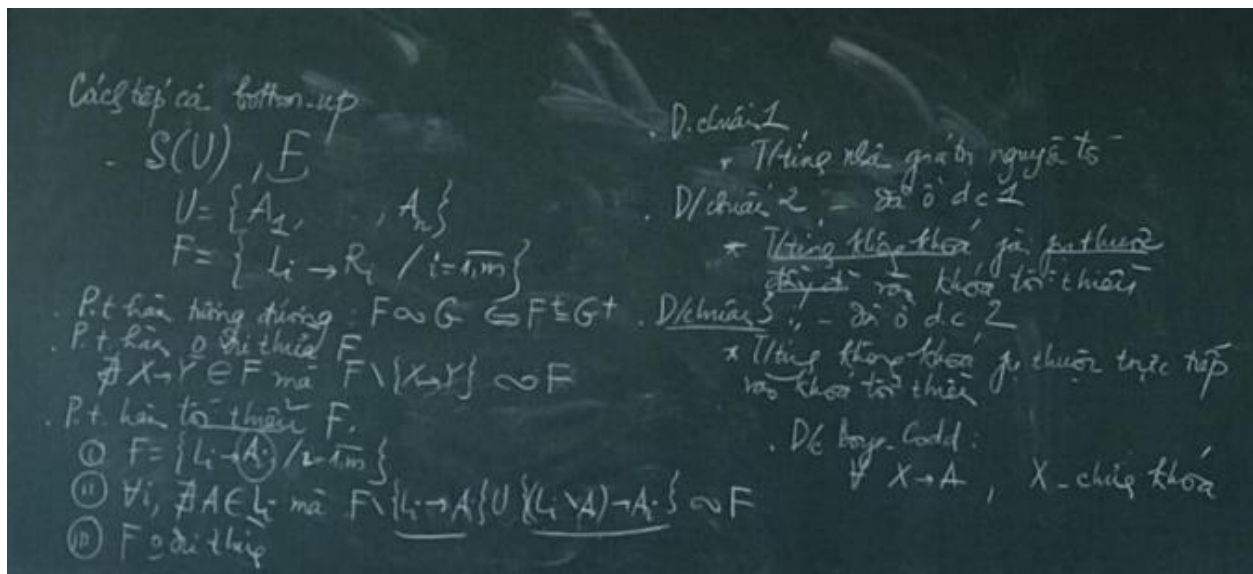 Cách tiếp cận bottom-up
- S(U), F
U = {A₁, , Aₙ}
F = {Lᵢ → Rᵢ / i=1,m}
. P.t hàm tương đương: F ∞ G ⇔ F⁺ = G⁺
. P.t. hàm o dư thừa F
∄ X→Y ∈ F mà F \ {X→Y} ∞ F
. P.t. hàm tối thiểu F.
(i) F = {Lᵢ → Aᵢ / i=1,m}
(ii) ∀i, ∄A ∈ Lᵢ mà F \ {Lᵢ → Aᵢ} U {(Lᵢ \ A) → Aᵢ} ∞ F
(iii) F o dư thừa
. D. chuẩn 1
* T/tính nhận giá trị nguyên tố
. D/chuẩn 2 - đã ở d c 1
* T/tính không khoá phụ thuộc
đầy đủ vào khoá tối thiểu
. D/chuẩn 3 - đã ở d.c. 2
* T/tính không khoá phụ thuộc trực tiếp
vào khoá tối thiểu
. D/c Boye_Codd:
∀ X→A, X - chứa khoá